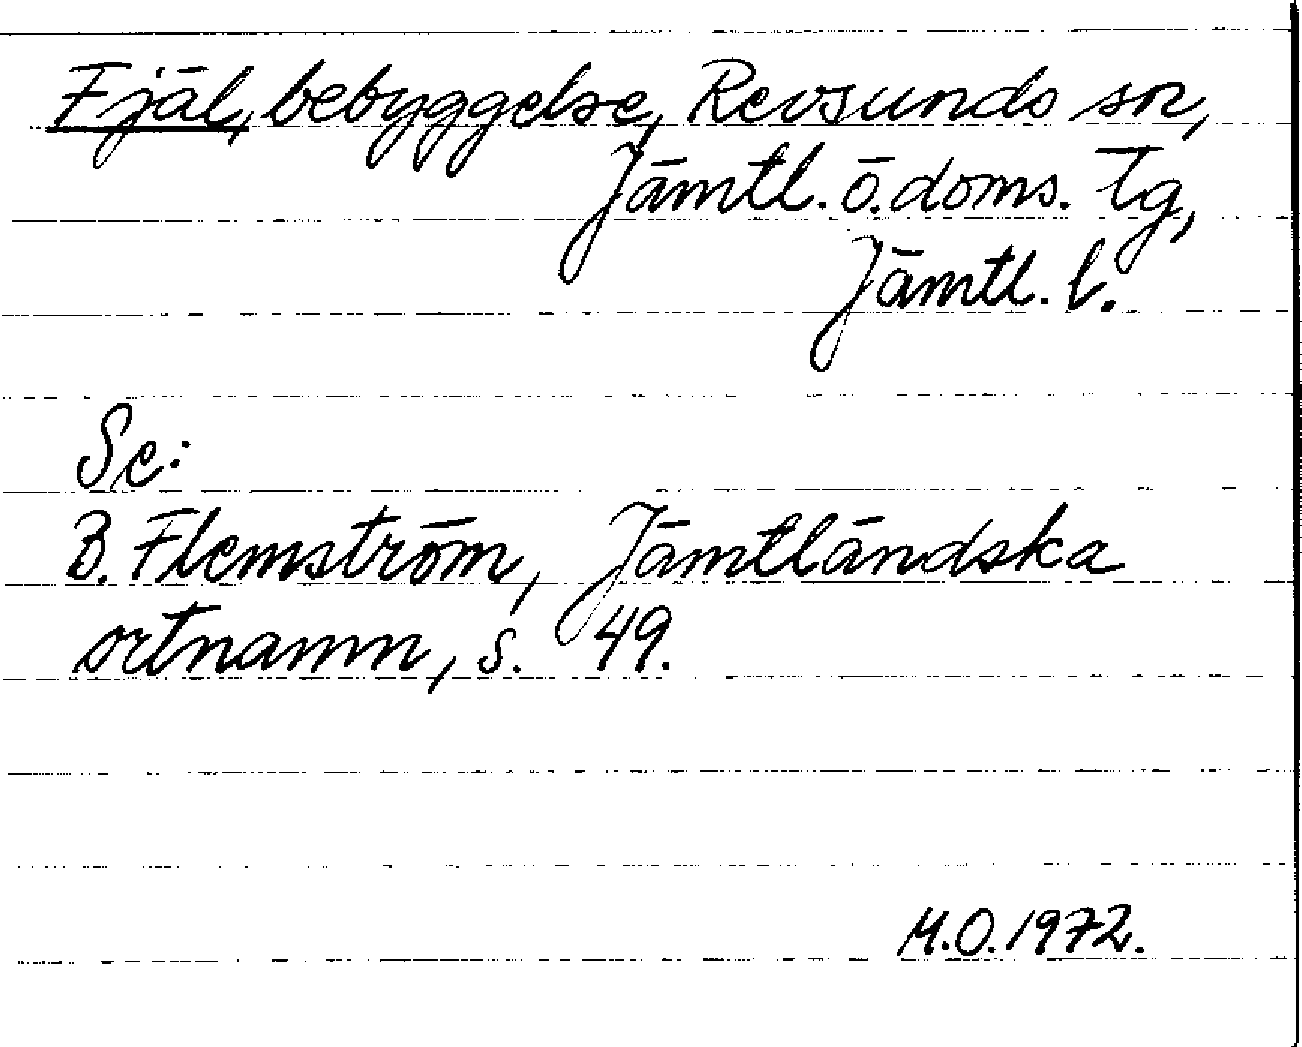 Fjäl, bebyggelse, Revsunds sn,
Jämtl. ö. doms. tg,
Jämtl. l.
Se:
B. Flemström, Jämtländska
ortnamn, s. 49.
M.O. 1972.